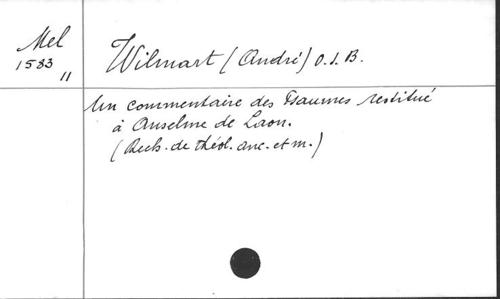 Mel
1583
11
Wilmart (André) O.S.B.
Un commentaire des Psaumes restitué
à Anselme de Laon.
(Rech. de théol. anc. et m.)